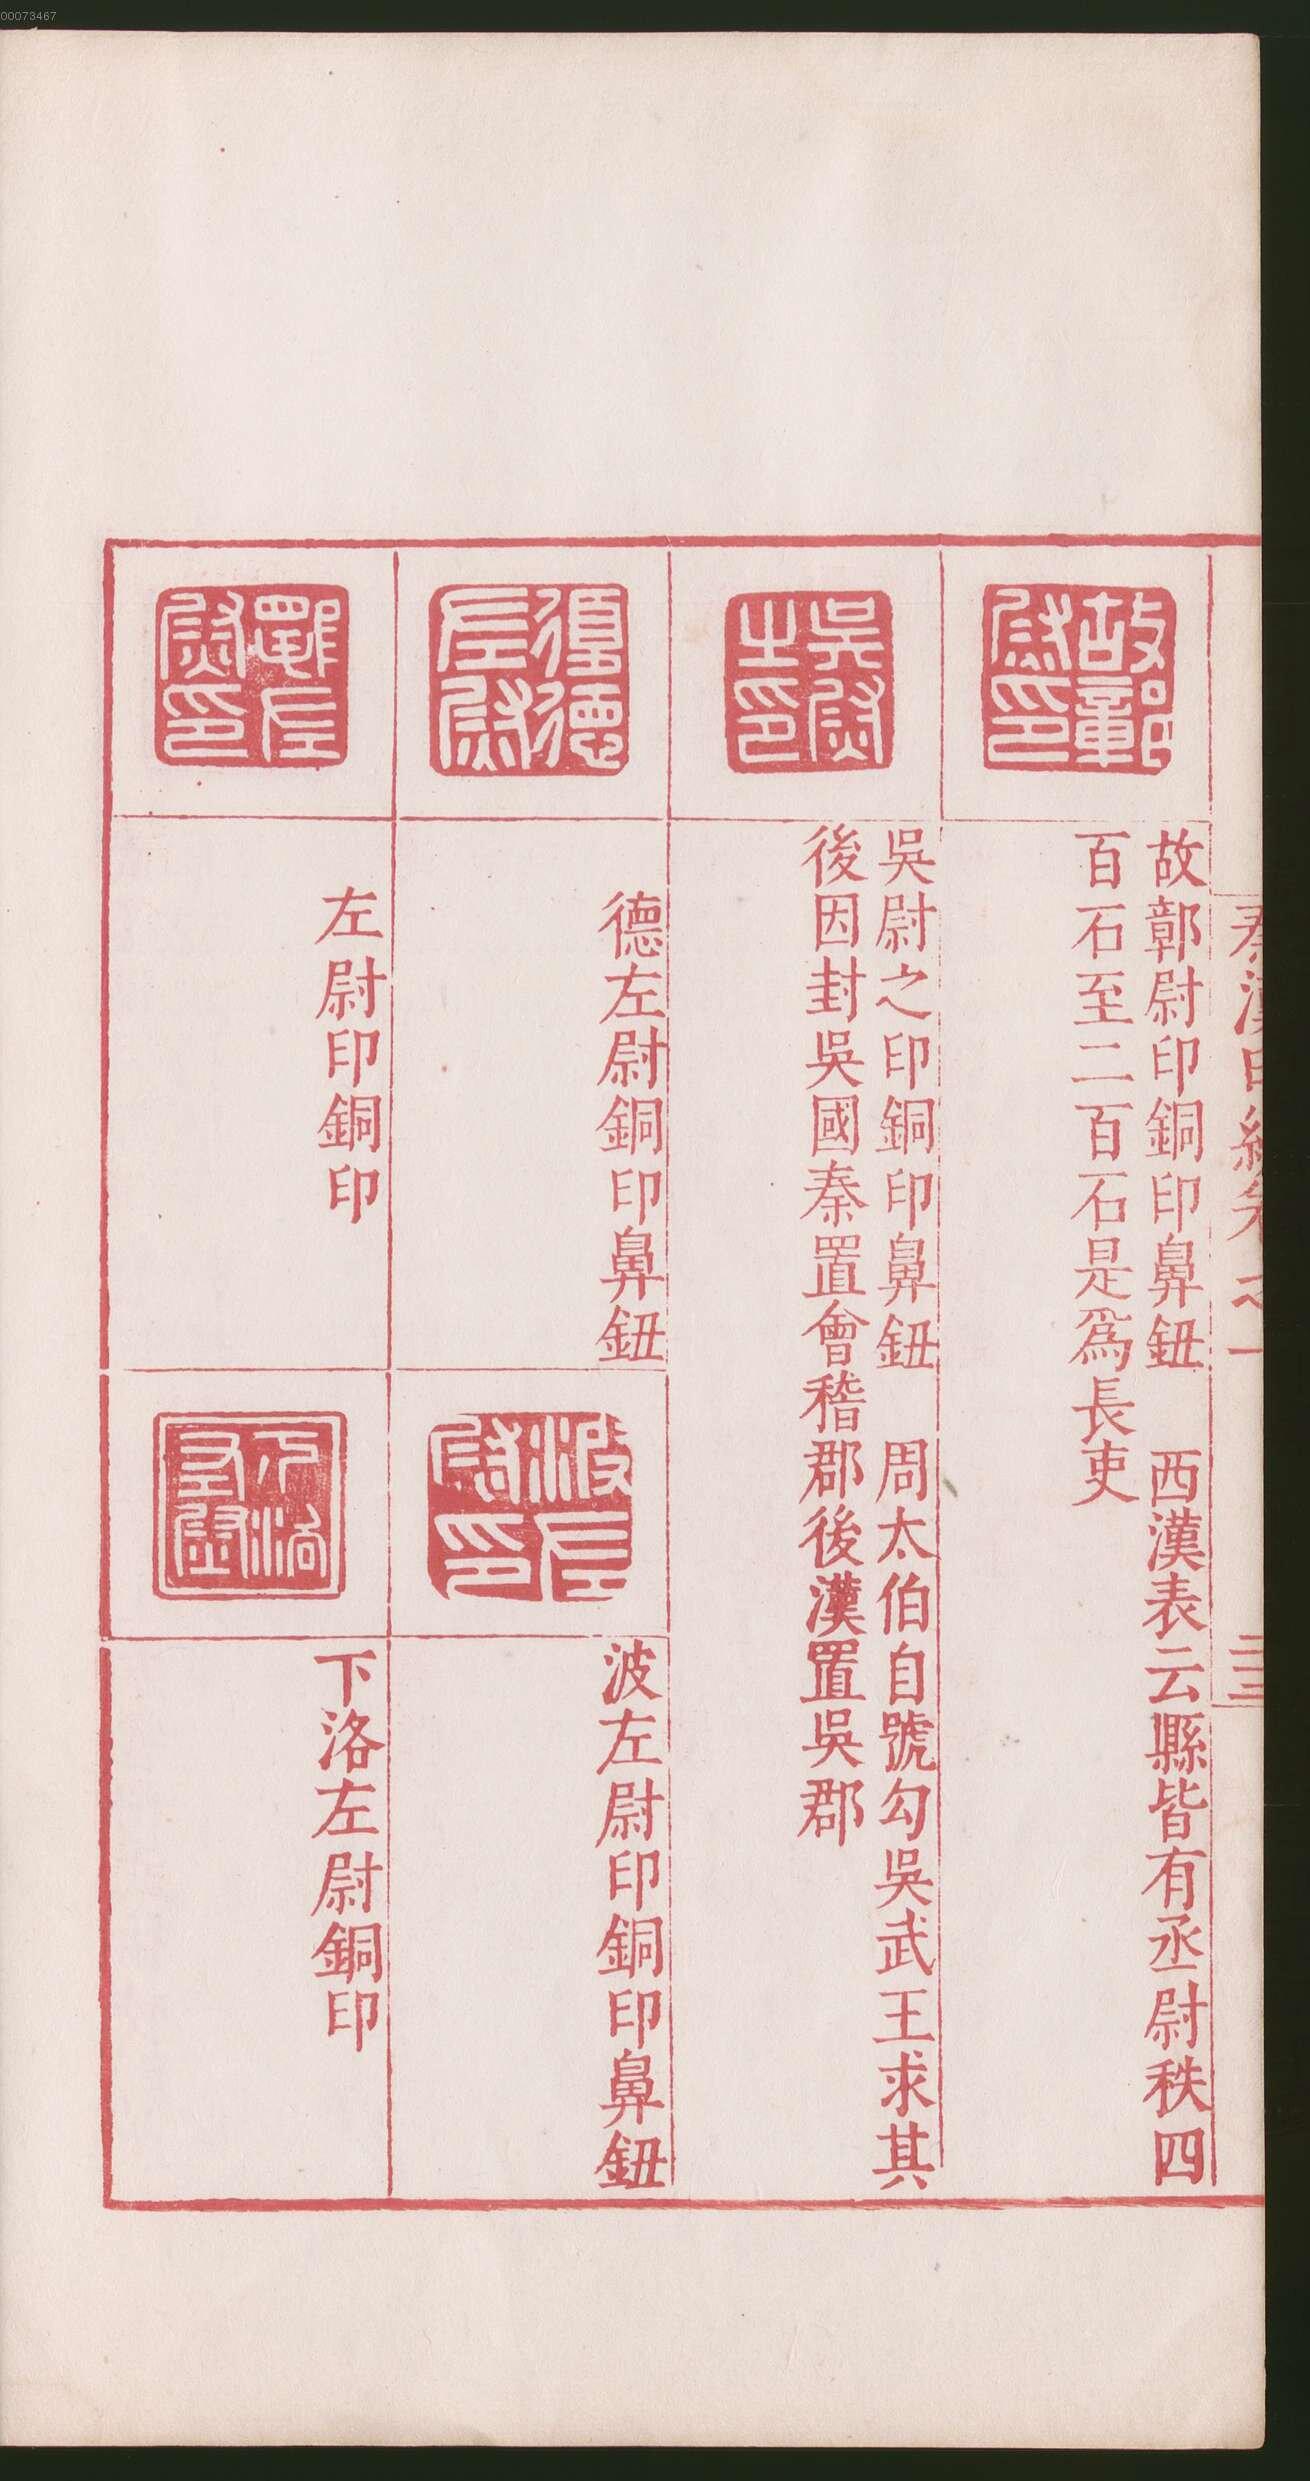 00073467
故鄣尉印
故鄣尉印銅印鼻鈕　西漢表云縣皆有丞尉秩四
百石至二百石是爲長吏
吳尉之印
吳尉之印銅印鼻鈕　周太伯自號勾吳武王求其
後因封吳國秦置會稽郡後漢置吳郡
左尉
德左尉銅印鼻鈕
波左尉印
波左尉印銅印鼻鈕
左尉印
左尉印銅印
下洛左尉
下洛左尉銅印